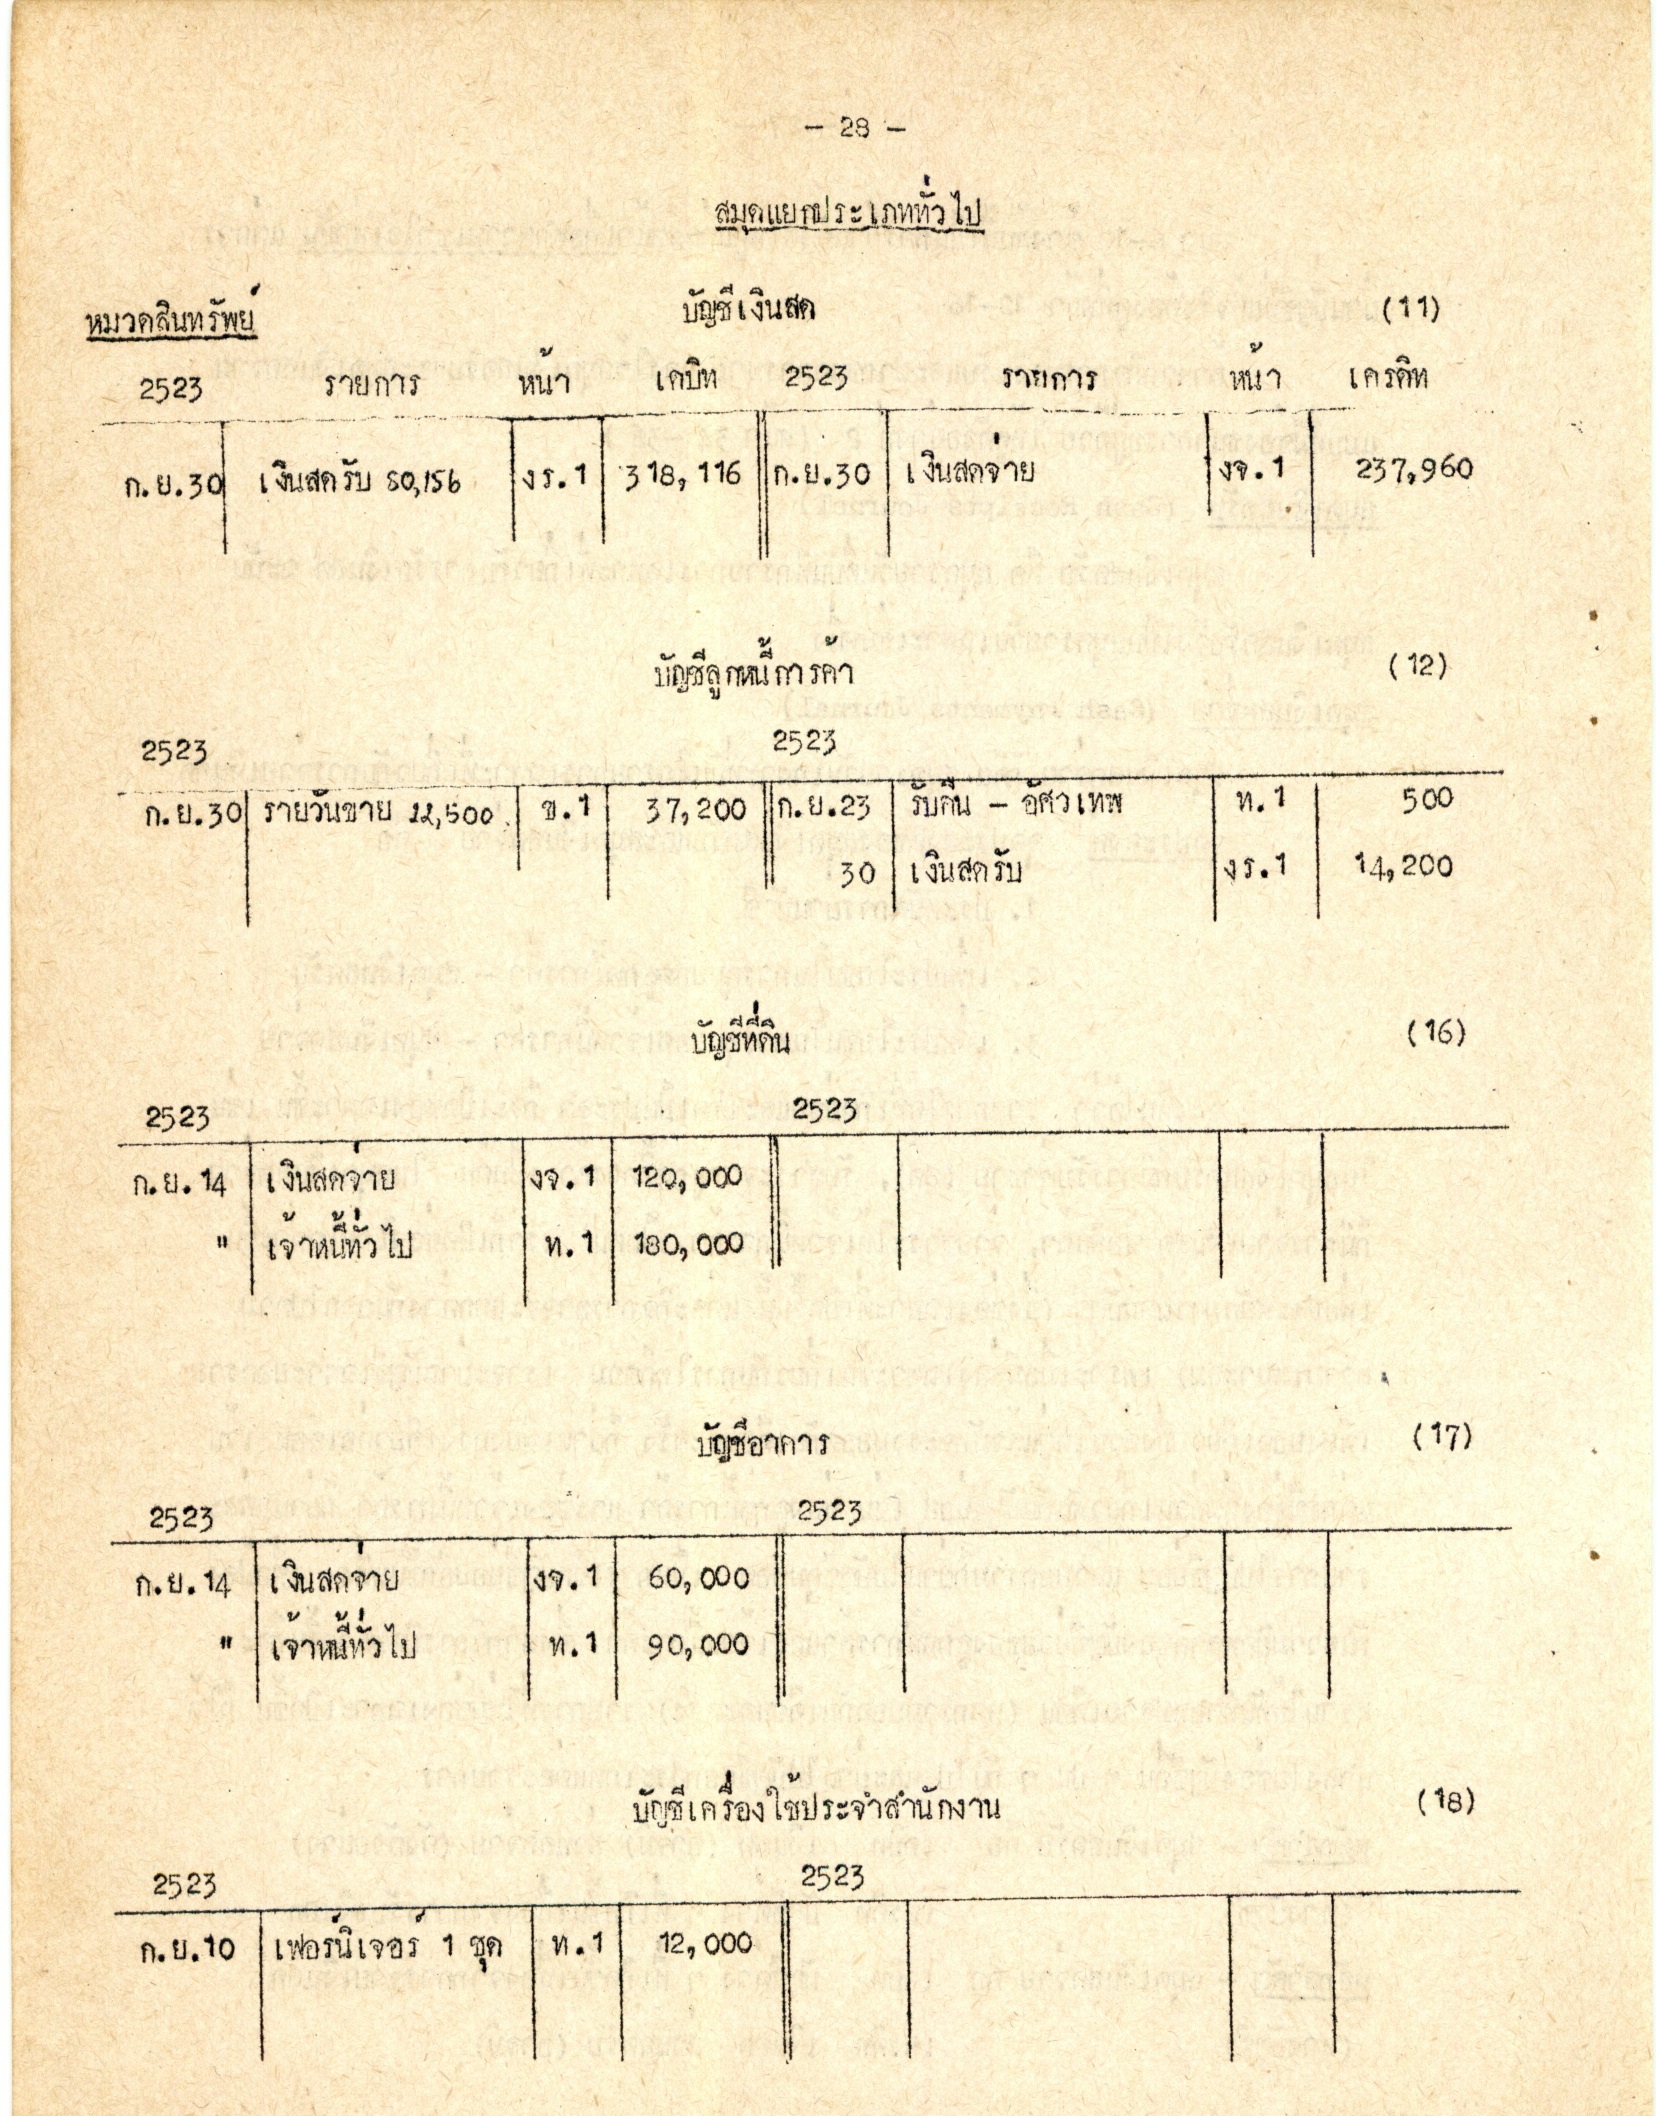 - 28 -
สมุดแยกประเภททั่วไป
หมวดสินทรัพย์ บัญชีเงินสด (11)
2523 รายการ หน้า เดบิท 2523 รายการ หน้า เครดิท
ก.ย.30 เงินสดรับ 80,156 งร.1 318,116 ก.ย.30 เงินสดจ่าย งจ.1 237,960
บัญชีลูกหนี้การค้า (12)
2523 2523
ก.ย.30 รายวันขาย 22,500 ข.1 37,200 ก.ย.23 รับคืน - อัศวเทพ ท.1 500
30 เงินสดรับ งร.1 14,200
บัญชีที่ดิน (16)
2523 2523
ก.ย.14 เงินสดจ่าย งจ.1 120,000
" เจ้าหนี้ทั่วไป ท.1 180,000
บัญชีอาคาร (17)
2523 2523
ก.ย.14 เงินสดจ่าย งจ.1 60,000
" เจ้าหนี้ทั่วไป ท.1 90,000
บัญชีเครื่องใช้ประจำสำนักงาน (18)
2523 2523
ก.ย.10 เฟอร์นิเจอร์ 1 ชุด ท.1 12,000